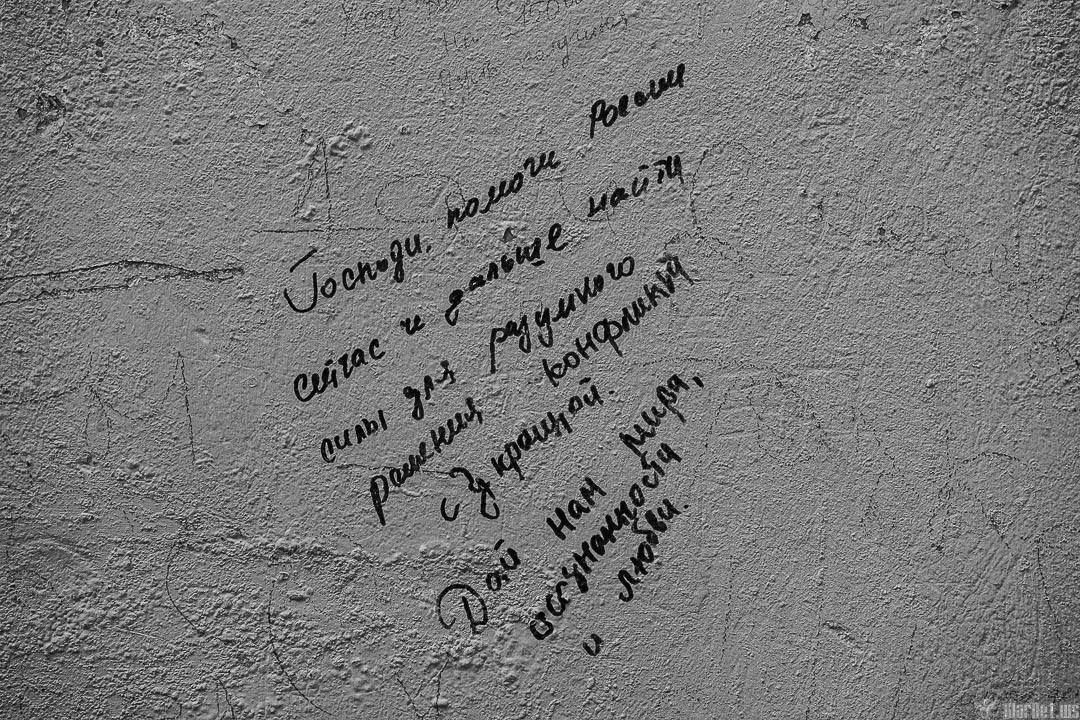 Господи, помоги России
сейчас и дальше найти
силы для разумного
решения конфликта
с Украиной.
Дай нам мира,
осознанности
и любви.